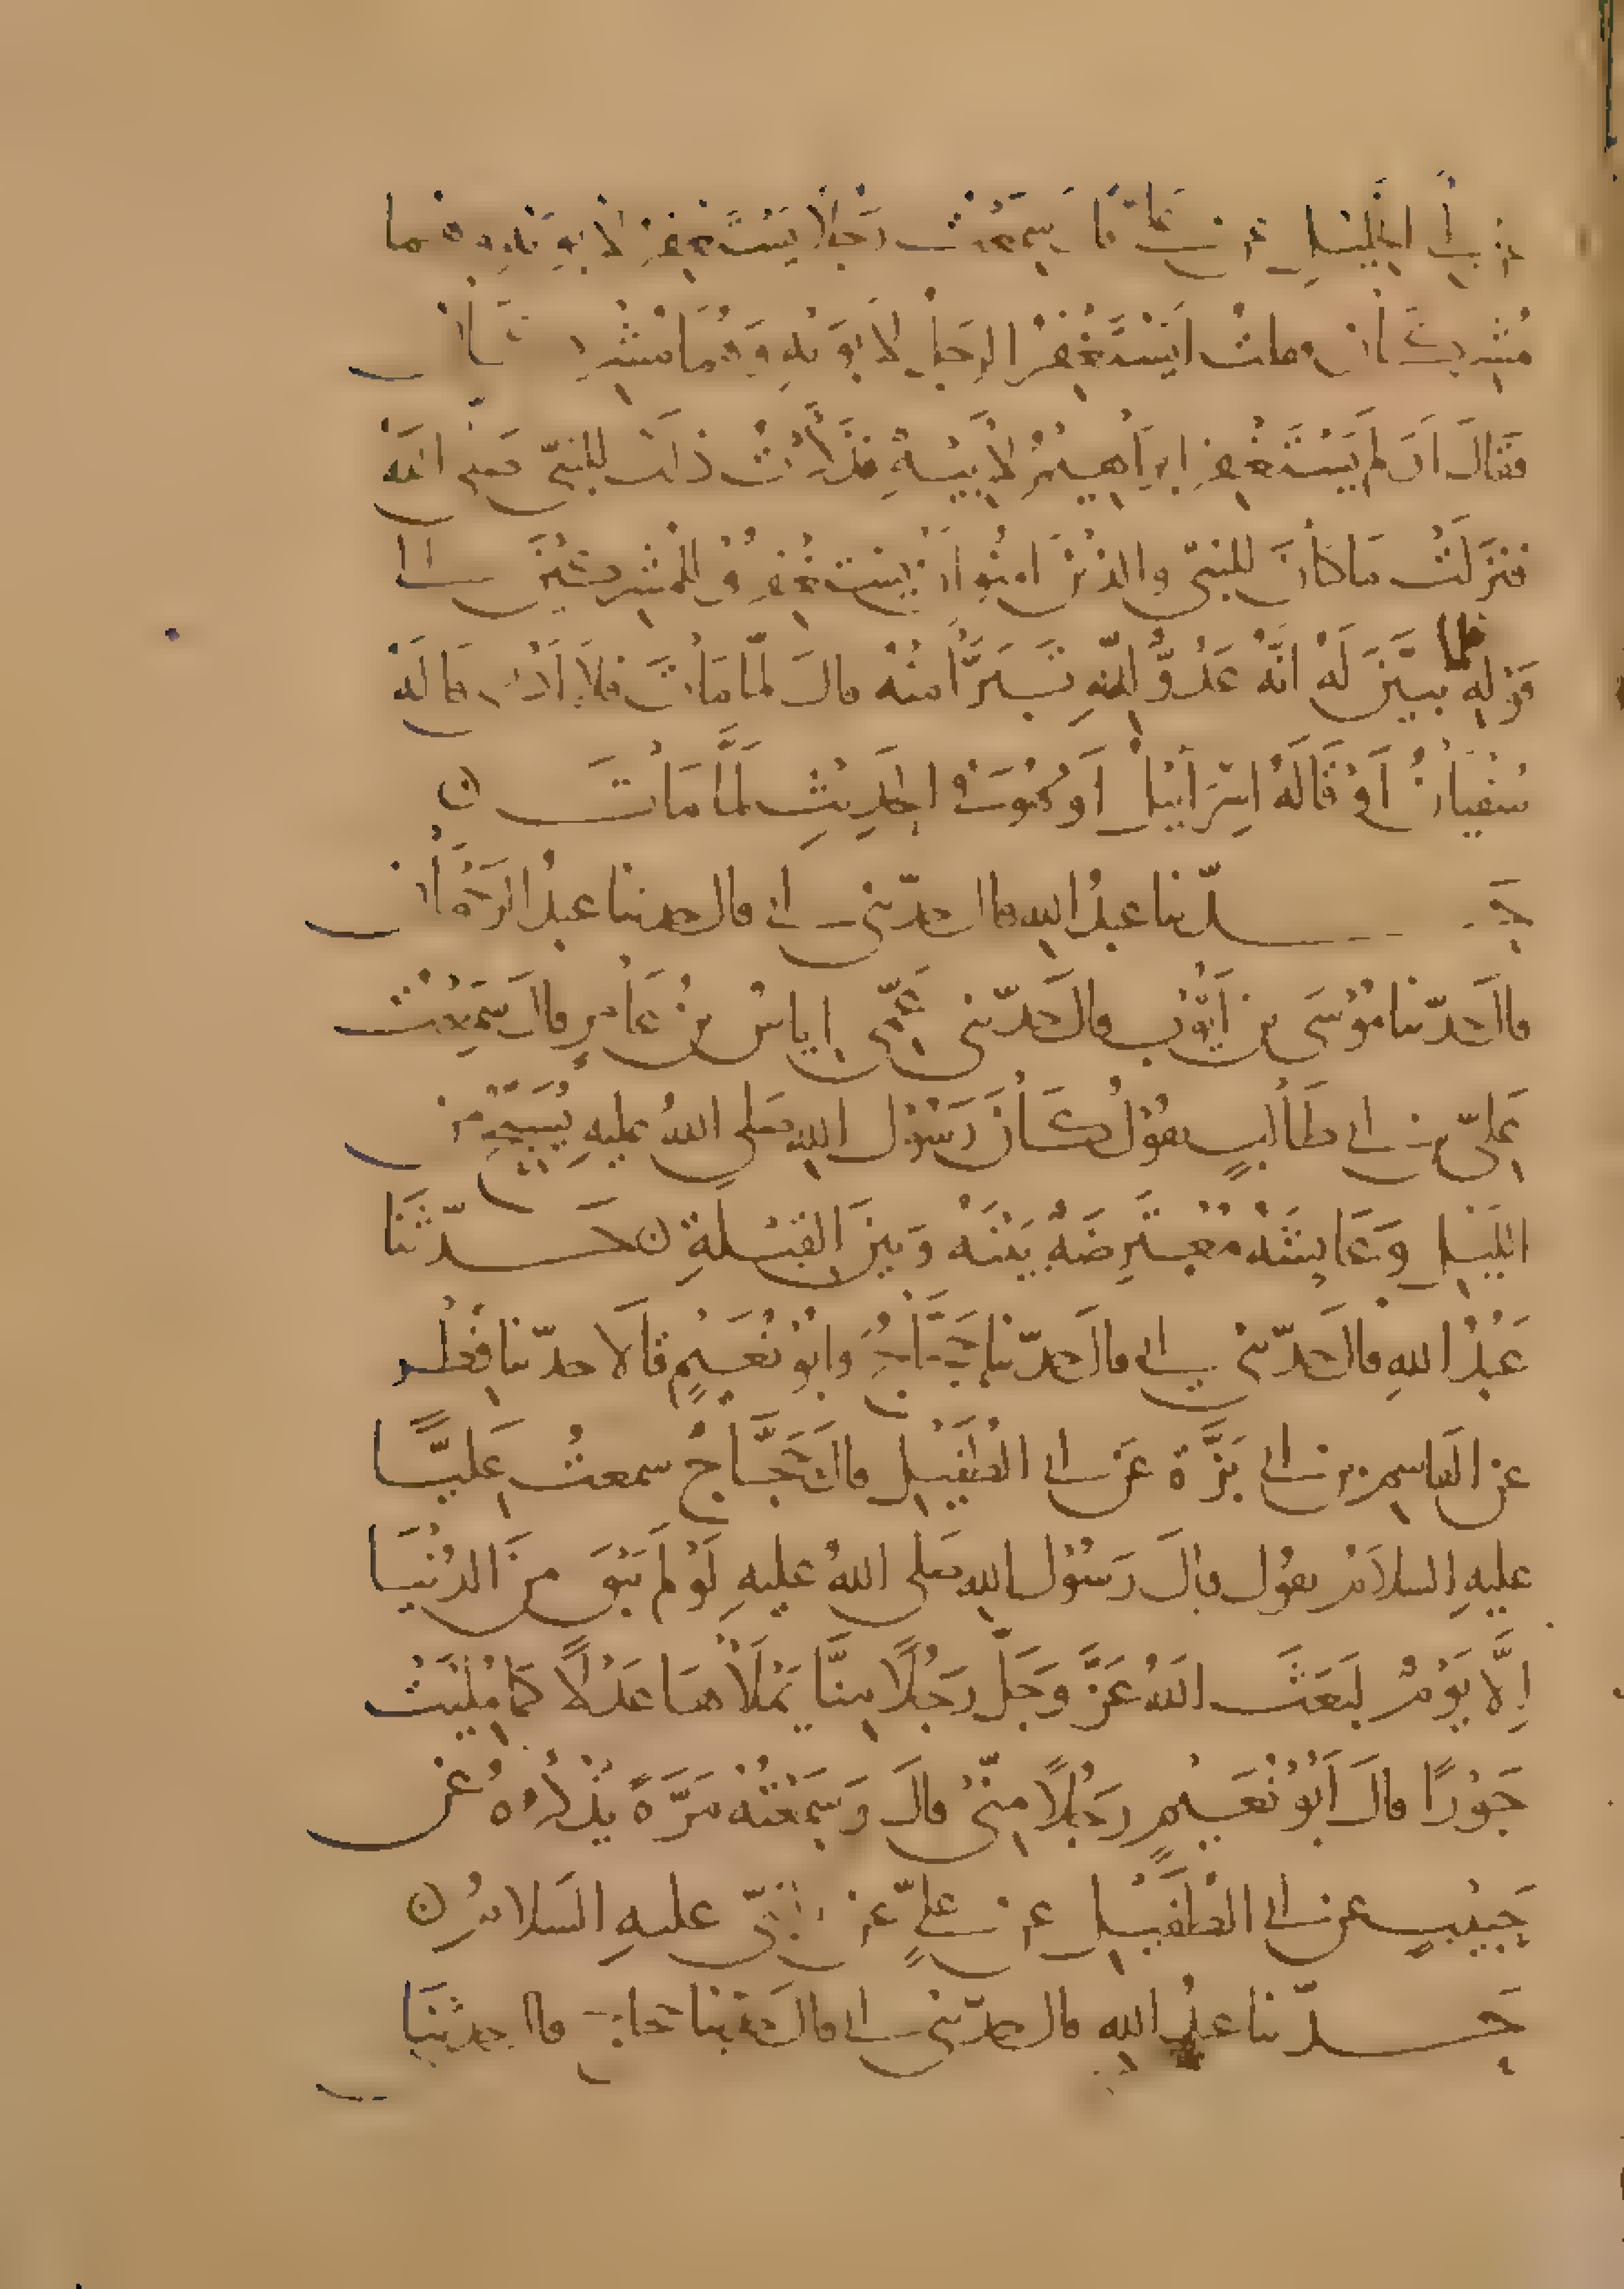 عن أبي الخليل عن علي قال سَمِعْتُ رَجُلًا يَسْتَغْفِرُ لأَبَوَيْهِ وهما
مُشْرِكَانِ فقلتُ أَيَسْتَغْفِرُ الرجلُ لأَبَوَيْهِ وَهُمَا مُشْرِكَانِ
فَقَالَ أَوَلَمْ يَسْتَغْفِرْ ابرَاهِيمُ لأَبِيهِ فَذَكَرْتُ ذلك للنبيّ صلى الله
فنزَلَتْ مَا كَانَ للنبيّ والذين امنُوا أنْ يستغْفِرُوْا للمُشركيْنَ الى
قَوْلِهِ فلما تبيَّنَ لَهُ انَّهُ عَدُوٌّ لِلَّهِ تَبَرَّأَ منْهُ قالَ لَمَّا مَاتَ فَلاَ أَدْرِي قَالَهُ
سُفْيانُ أَوْ قَالَهُ اسْرَائيلُ أَو هُوَ فى الحَدِيْثِ لَمَّا مَاتَ ن
حَدّثنا عبدُ الله قال حدّثنى ابى قال حدثنا عبدُ الرحمَان
قالَ حدّثنا مُوْسَى بن أَيُّوْب قال حَدّثنى عَمِّى إياسُ بنُ عَامِرٍ قالَ سَمِعْتُ
عَلِىّ بن ابى طَالبٍ يقوْلُ كَانَ رَسُوْل اللهِ صلى اللهُ عليهِ يُسَبِّحُ مِنَ
اللَيْلِ وَعَايشَةُ مُعْتَرِضَةٌ بَيْنَهُ وَبينَ القِبْلَةِ ن حَدّثَنَا
عَبْدُ اللهِ قالَ حَدّثنى ابى قالَ حَدّثنا حَجَّاجٌ وَابُوْ نُعَيْمٍ قَالاَ حدّثنا فِطْر
عن القاسِم بن ابى بَزَّة عَن ابى الطُفَيْلِ قالَ حَجَّاجٌ سمعتُ عَلِيًّا
عليهِ السلاَمُ يقوُل قالَ رَسُوْل اللهِ صَلى اللهُ عليهِ لَوْ لَمْ يَبْقَ مِنَ الدُنْيَا
اِلَّا يَوْمٌ لَبَعَثَ اللهُ عَزَّ وَجَلَّ رَجُلًا مِنَّا يَمْلَأُهَا عَدْلًا كَمَا مُلِئَتْ
جَوْرًا قالَ أَبُوْ نُعَيْمٍ رَجُلًا مِنّىْ قالَ وَسَمِعْتُه مَرَّةً يَذْكُرُهُ عَنْ
حَبِيْبٍ عن ابى الطُفَيْلِ عن علىٍّ عن النبىّ عليهِ السَلامُ ن
حَدّثنا عبدُ اللهِ قال حدّثنى ابى قالَ حدثنا حجاج قال حدثنَا